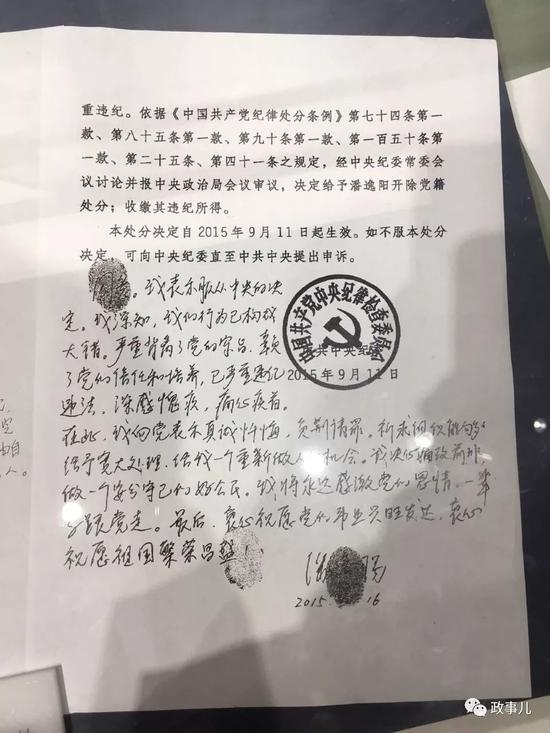 重违纪。依据《中国共产党纪律处分条例》第七十四条第一
款、第八十五条第一款、第九十条第一款、第一百五十条第
一款、第二十五条、第四十一条之规定，经中央纪委常委会
议讨论并报中央政治局会议审议，决定给予潘逸阳开除党籍
处分；收缴其违纪所得。
本处分决定自2015年9月11日起生效。如不服本处分
决定，可向中央纪委直至中共中央提出申诉。
我表示服从中央的决
定。我深知，我的行为已构成
大错。严重背离了党的宗旨、辜负
了党的信任和培养，已严重违纪
违法，深感愧疚，痛心疾首。
中国共产党中央纪律检查委员会
共中央纪
2015年9月11日
在此，我向党表示真诚忏悔，负荆请罪。祈求组织能够
给予宽大处理，给我一个重新做人的机会。我决心痛改前非，
做一个安分守己的好公民。我将永远感激党的恩情，一辈
子跟党走。最后，衷心祝愿党的事业兴旺发达，衷心
祝愿祖国繁荣昌盛！
2015. 16
人。
政事儿